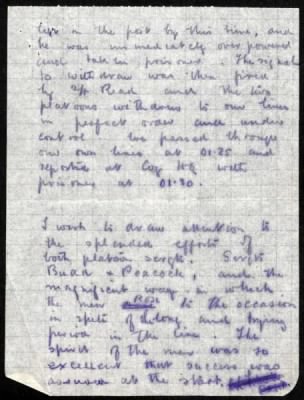 left in the post by this time, and
he was immediately overpowered
and taken prisoner. The signal
to withdraw was then fired
by Lt Read and the two
platoons withdrew to our lines
in perfect order and under
control. We passed through
our own lines at 01.25 and
reported at Coy HQ with
prisoners at 01.30.
I wish to draw attention to
the splendid efforts of
both platoon sergts. Sergts
Budd & Peacock, and the
magnificent way in which
the men rose to the occasion
in spite of a long and trying
period in the line. The
spirit of the men was so
excellent that success was
assured at the start.